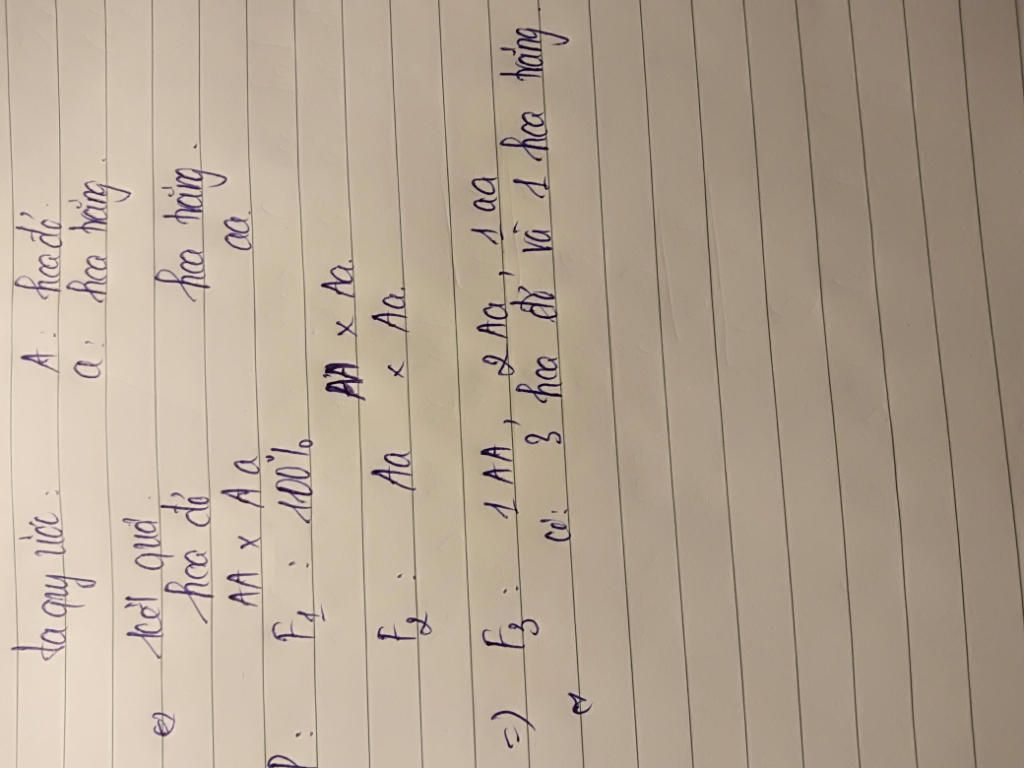 ta quy ước: A: hoa đỏ.
a: hoa trắng.
kết quả
hoa đỏ hoa trắng.
AA x Aa aa.
P: F1: 100%
AA x Aa.
F2: Aa x Aa.
=) F3: 1 AA, 2 Aa, 1 aa
có: 3 hoa đỏ và 1 hoa trắng.